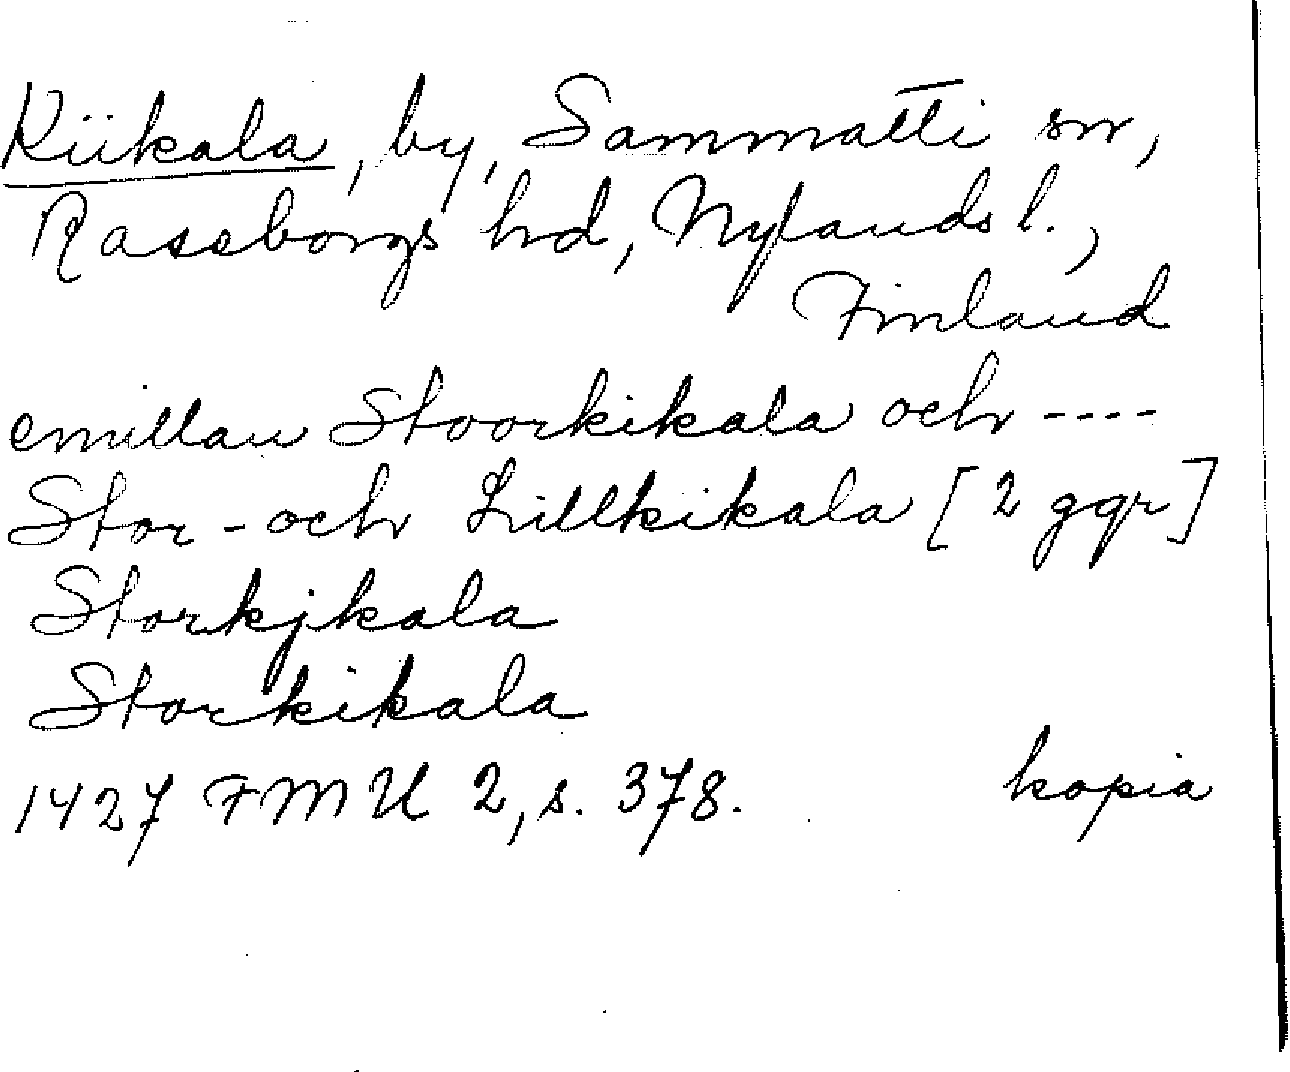 Kiikala, by, Sammatti sn,
Raseborgs hd, Nylands l.,
Finland
emillan Stoorkikala och ----
Stor- och Lillkikala [2 ggr]
Storkjkala
Storkikala
1427 FMU 2, s. 378. kopia